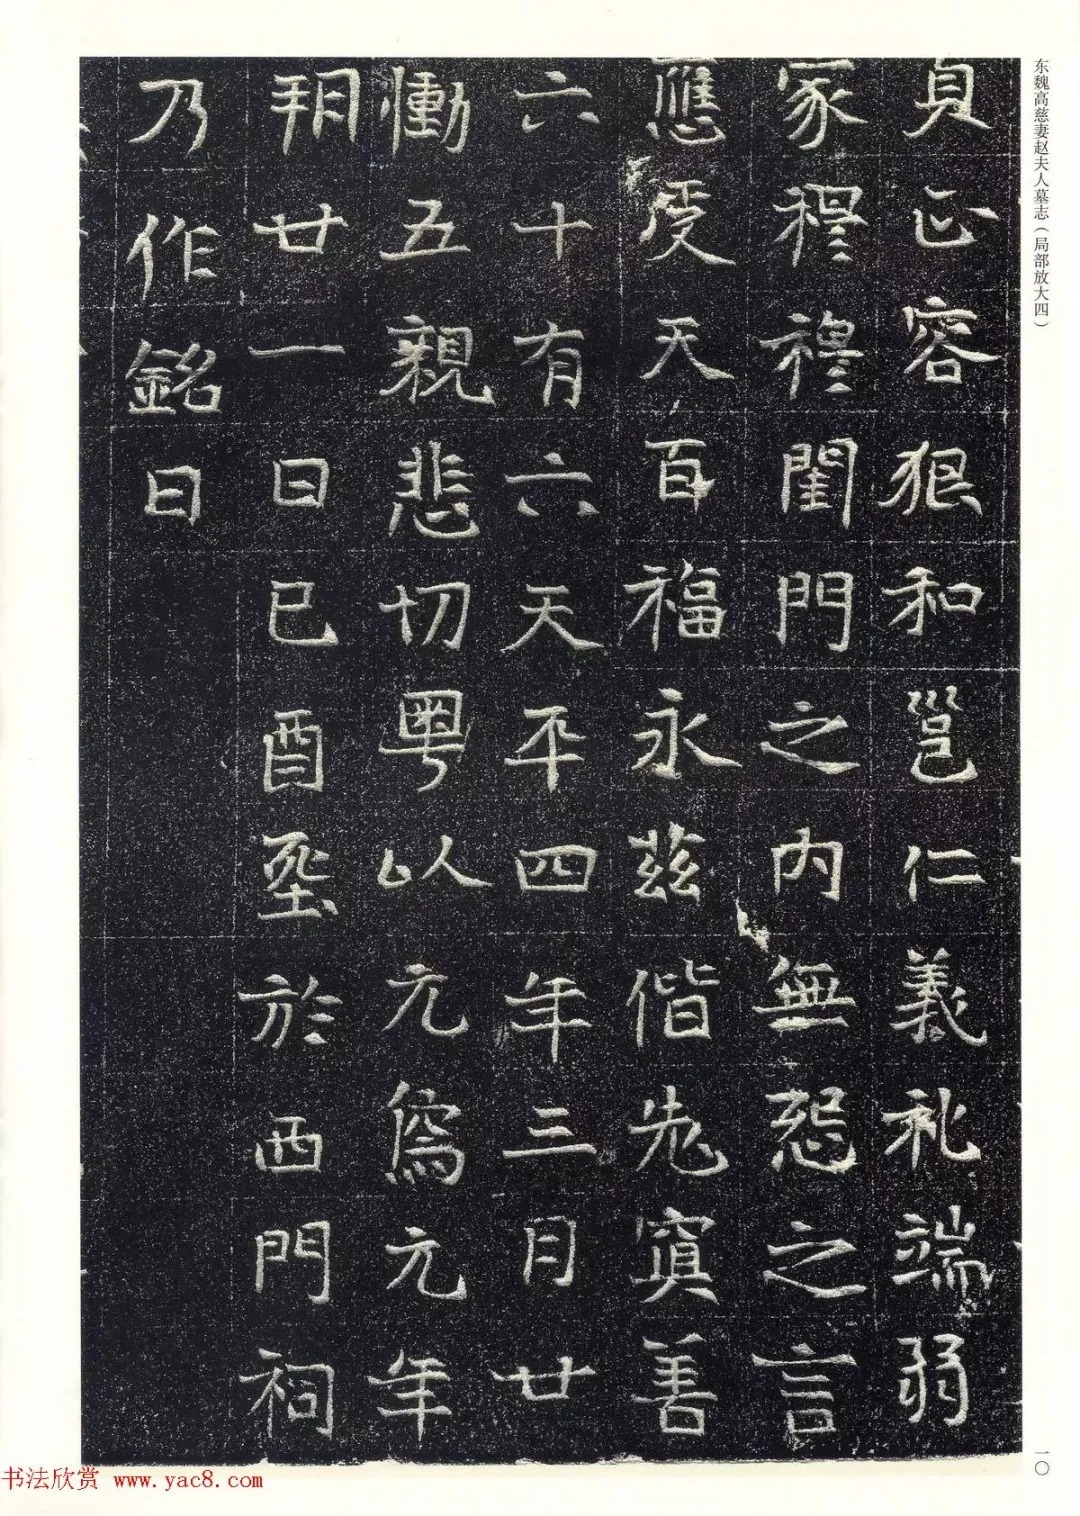 东魏高慈妻赵夫人墓志（局部放大四）
貞正容狠和邕仁義礼端弱
家穆穆閨門之內無怨之言
應受天百福永茲偕老寘善
六十有六天平四年三月廿
慟五親悲切粵以元象元年
朔廿一日己酉葬於西門祠
乃作銘曰
一〇
书法欣赏 www.yac8.com